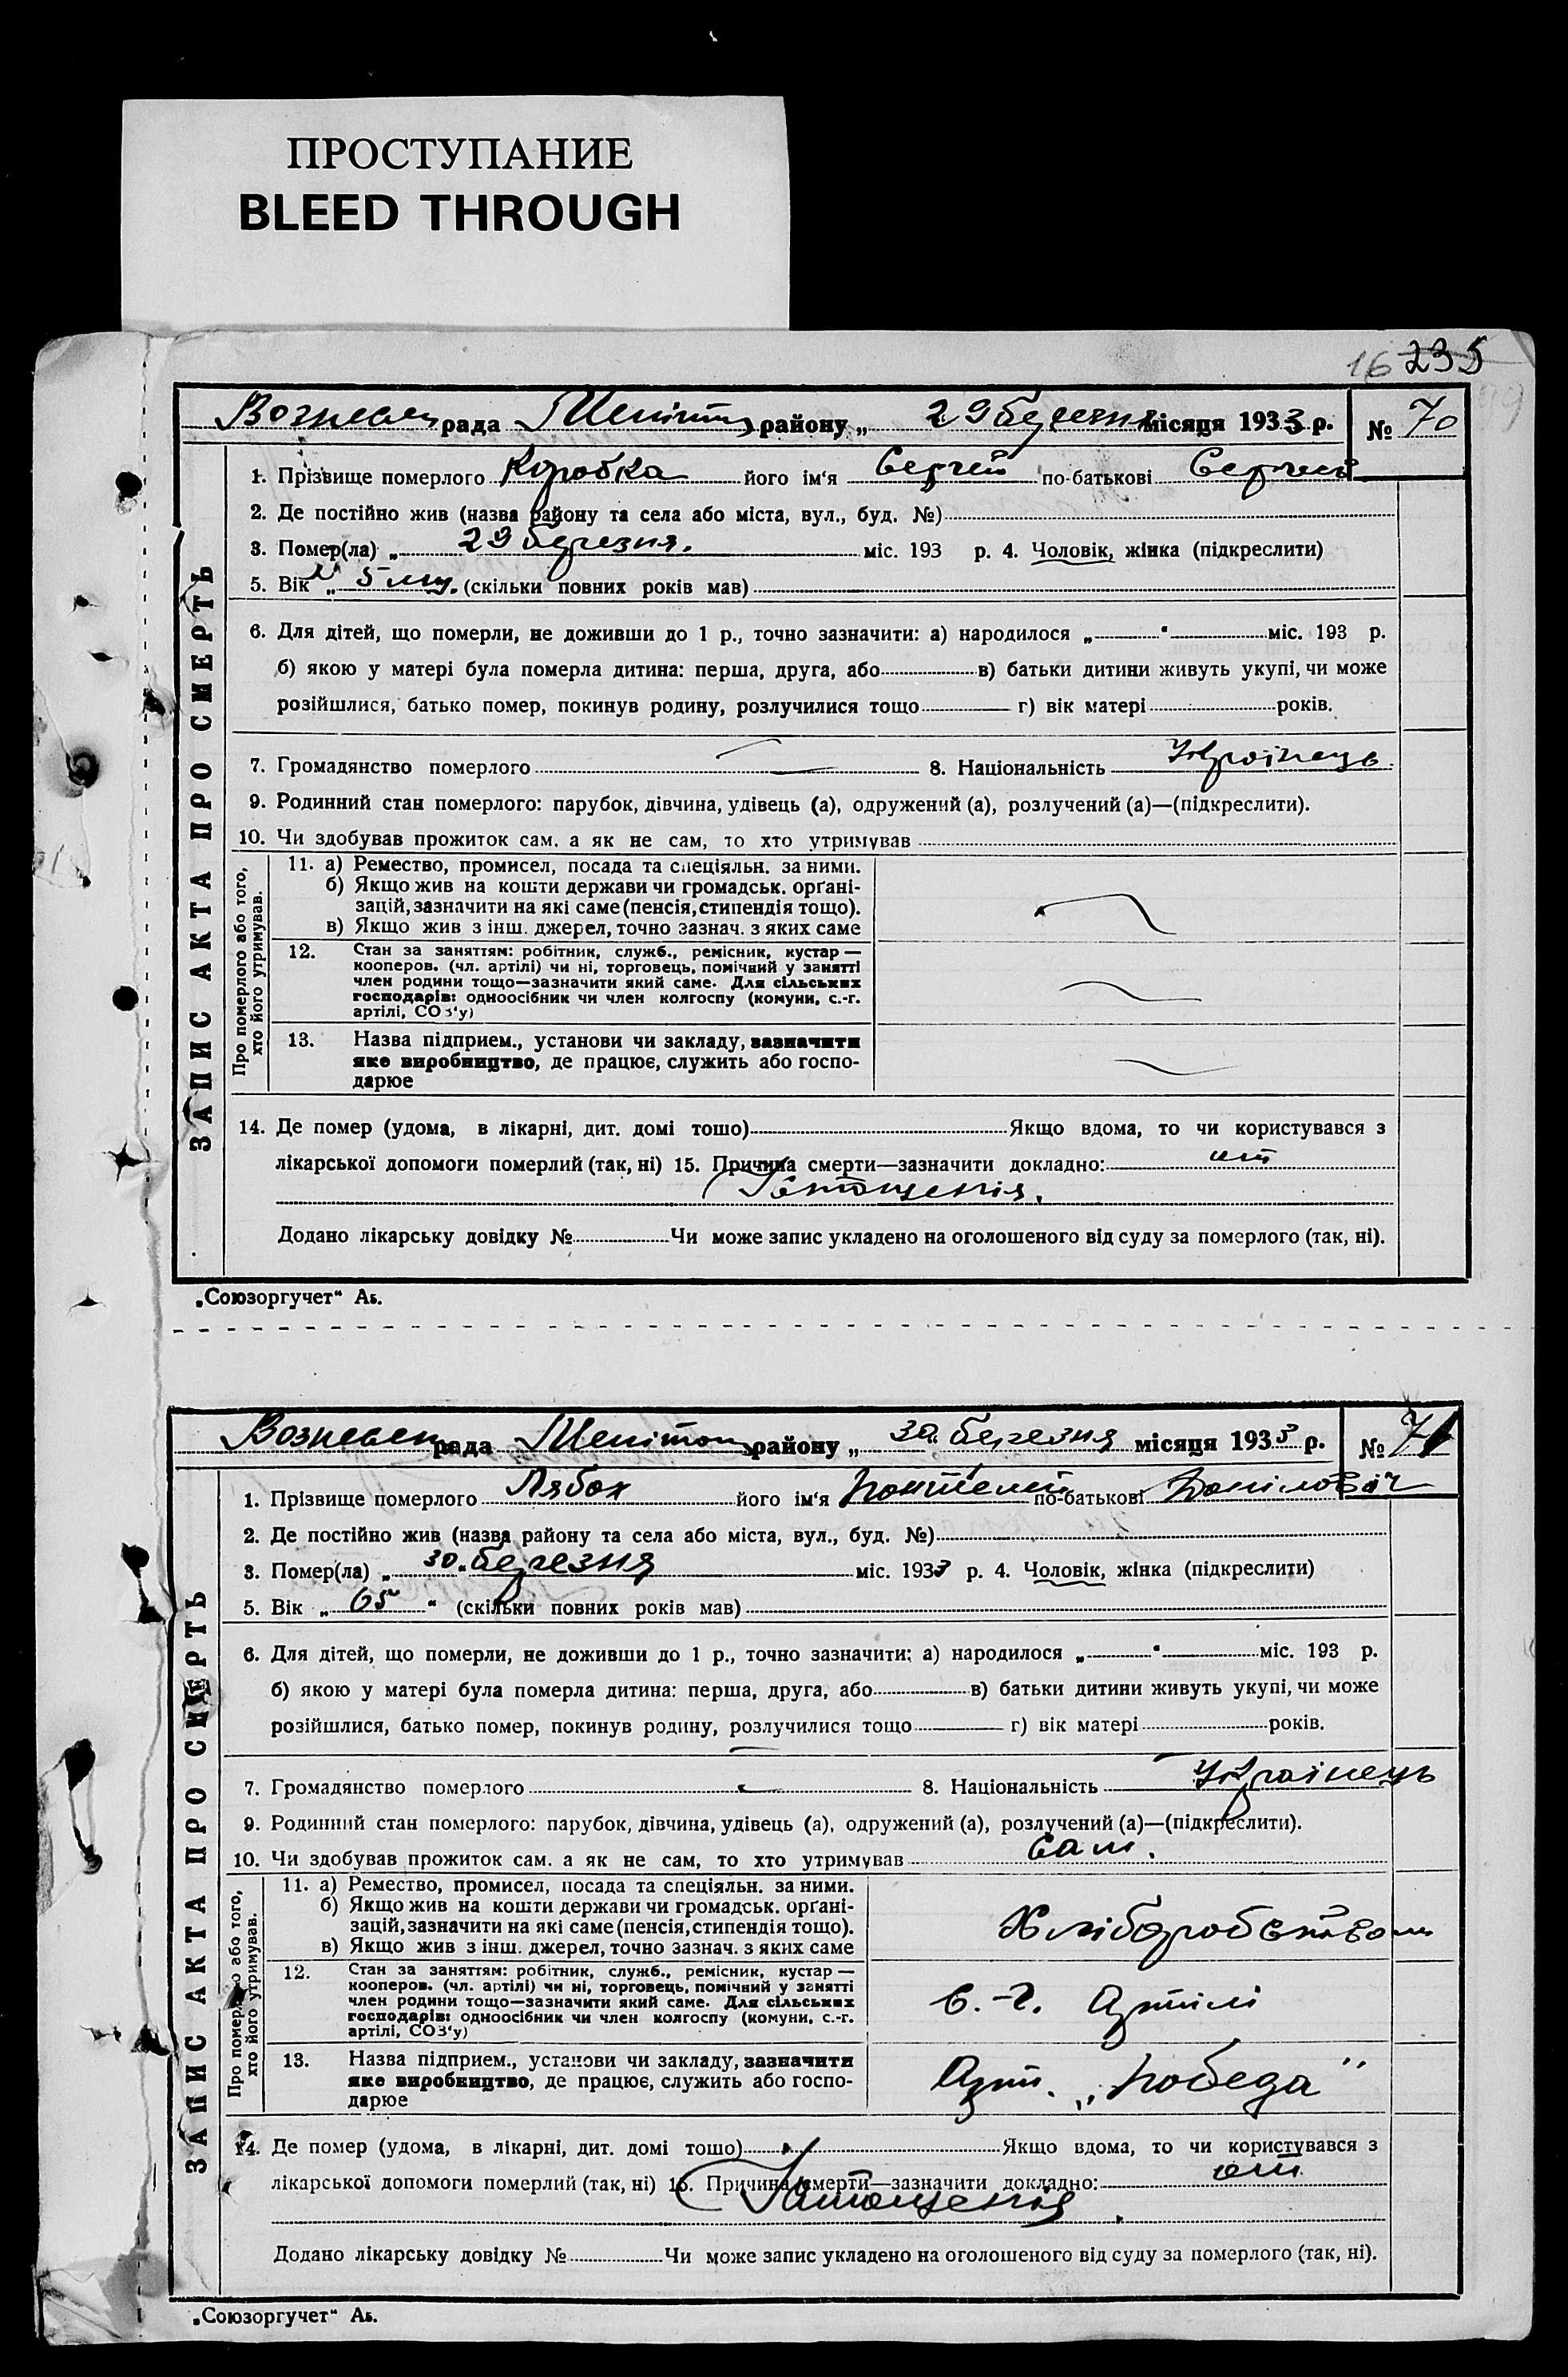 ПРОСТУПАНИЕ
BLEED THROUGH
16 235
Вознесен рада Меліт району „ 29 березня місяця 1933 р. № 70
1. Прізвище померлого Коробка його ім‘я Сергій по-батькові Сергієв
2. Де постійно жив (назва району та села або міста, вул., буд. №)
3. Помер(ла) „ 29 березня. міс. 193 р. 4. Чоловік, жінка (підкреслити)
5. Вік „ 5 (скільки повних років мав)
6. Для дітей, що померли, не доживши до 1 р., точно зазначити: а) народилося „ “ міс. 193 р.
б) якою у матері була померла дитина: перша, друга, або в) батьки дитини живуть укупі, чи може
розійшлися, батько помер, покинув родину, розлучилися тощо г) вік матері років.
7. Громадянство померлого 8. Національність Українець
9. Родинний стан померлого: парубок, дівчина, удівець (а), одружений (а), розлучений (а)—(підкреслити).
10. Чи здобував прожиток сам. а як не сам, то хто утримував
Про померлого або того,
хто його утримував.
11. а) Ремество, промисел, посада та спеціяльн. за ними.
б) Якщо жив на кошти держави чи громадськ. орґані-
зацій, зазначити на які саме (пенсія, стипендія тощо).
в) Якщо жив з інш. джерел, точно зазнач. з яких саме
12. Стан за заняттям: робітник, служб., ремісник, кустар —
кооперов. (чл. артілі) чи ні, торговець, помічний у занятті
член родини тощо—зазначити який саме. Для сільських
господарів: одноосібник чи член колгоспу (комуни, с.-г.
артілі, СОЗ‘у)
13. Назва підприєм., установи чи закладу, зазначити
яке виробництво, де працює, служить або госпо-
дарює
14. Де помер (удома, в лікарні, дит. домі тошо) Якщо вдома, то чи користувався з
лікарської допомоги померлий (так, ні) 15. Причина смерти—зазначити докладно: от
Істощенія.
Додано лікарську довідку № Чи може запис укладено на оголошеного від суду за померлого (так, ні).
ЗАПИС АКТА ПРО СМЕРТЬ
„Союзоргучет“ Аь.
Вознесен рада Мелітоп району „ 30 березня місяця 1933 р. № 71
1. Прізвище померлого Лябах його ім‘я Пантелей по-батькові Данілович
2. Де постійно жив (назва району та села або міста, вул., буд. №)
3. Помер(ла) „ 30 “ березня міс. 1933 р. 4. Чоловік, жінка (підкреслити)
5. Вік „ 65 “ (скільки повних років мав)
6. Для дітей, що померли, не доживши до 1 р., точно зазначити: а) народилося „ “ міс. 193 р.
б) якою у матері була померла дитина: перша, друга, або в) батьки дитини живуть укупі, чи може
розійшлися, батько помер, покинув родину, розлучилися тощо г) вік матері років.
7. Громадянство померлого 8. Національність Українець
9. Родинний стан померлого: парубок, дівчина, удівець (а), одружений (а), розлучений (а)—(підкреслити).
10. Чи здобував прожиток сам. а як не сам, то хто утримував сам.
Про померлого або того,
хто його утримував.
11. а) Ремество, промисел, посада та спеціяльн. за ними.
б) Якщо жив на кошти держави чи громадськ. орґані-
зацій, зазначити на які саме (пенсія, стипендія тощо).
в) Якщо жив з інш. джерел, точно зазнач. з яких саме
Хліборобством
12. Стан за заняттям: робітник, служб., ремісник, кустар —
кооперов. (чл. артілі) чи ні, торговець, помічний у занятті
член родини тощо—зазначити який саме. Для сільських
господарів: одноосібник чи член колгоспу (комуни, с.-г.
артілі, СОЗ‘у)
с.-г. артілі
13. Назва підприєм., установи чи закладу, зазначити
яке виробництво, де працює, служить або госпо-
дарює
Арт. „Победа"
14. Де помер (удома, в лікарні, дит. домі тошо) Якщо вдома, то чи користувався з
лікарської допомоги померлий (так, ні) 15. Причина смерти—зазначити докладно: от
Істощенія.
Додано лікарську довідку № Чи може запис укладено на оголошеного від суду за померлого (так, ні).
ЗАПИС АКТА ПРО СМЕРТЬ
„Союзоргучет“ Аь.